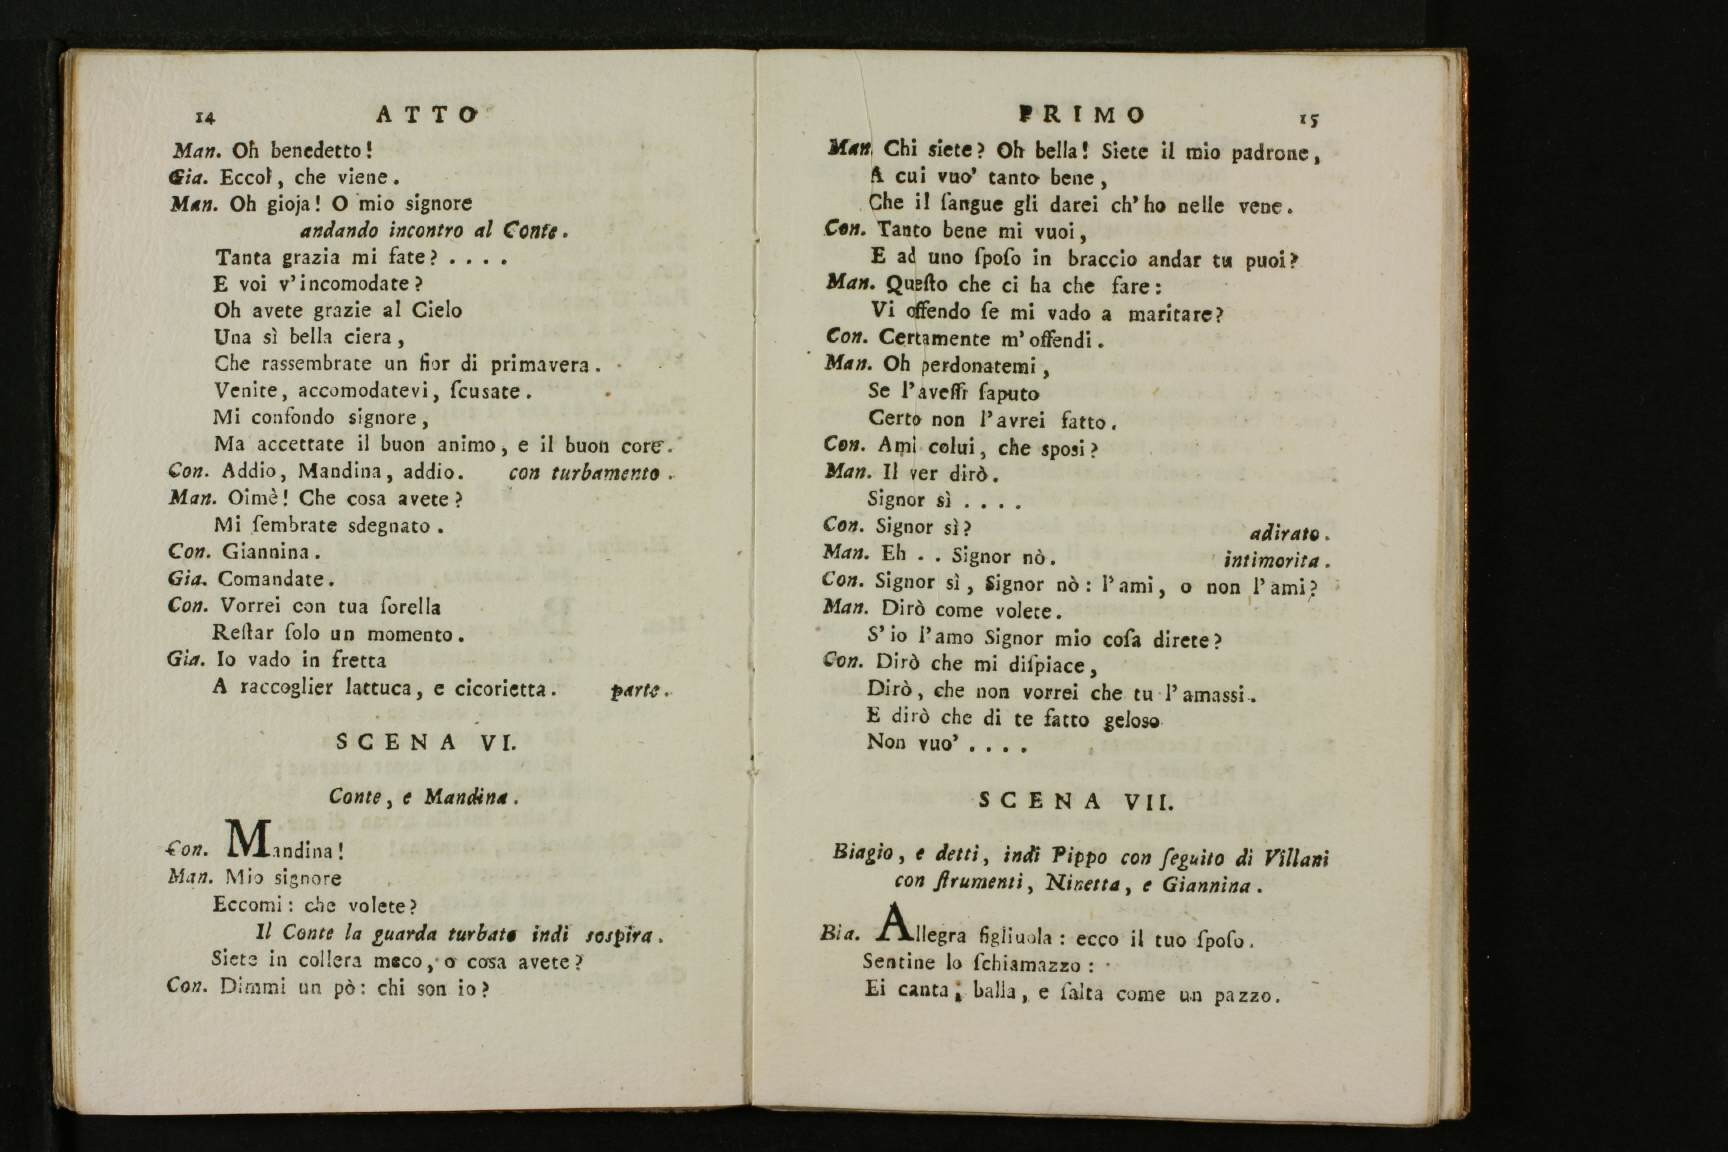 14 ATTO
Man. Oh benedetto!
Gia. Eccol, che viene.
Man. Oh gioja! O mio signore
andando incontro al Conte.
Tanta grazia mi fate? . . . .
E voi v'incomodate?
Oh avete grazie al Cielo
Una sì bella ciera,
Che rassembrate un fior di primavera.
Venite, accomodatevi, ſcusate.
Mi confondo signore,
Ma accettate il buon animo, e il buon core.
Con. Addio, Mandina, addio. con turbamento.
Man. Oimè! Che cosa avete?
Mi ſembrate sdegnato.
Con. Giannina.
Gia. Comandate.
Con. Vorrei con tua ſorella
Reſtar ſolo un momento.
Gia. Io vado in fretta
A raccoglier lattuca, e cicorietta. parte.
SCENA VI.
Conte, e Mandina.
Con. Mandina!
Man. Mio signore
Eccomi: che volete?
Il Conte la guarda turbato indi sospira.
Siete in collera meco, o cosa avete?
Con. Dimmi un pò: chi son io?
PRIMO 15
Man. Chi siete? Oh bella! Siete il mio padrone,
A cui vuo' tanto bene,
Che il ſangue gli darei ch'ho nelle vene.
Con. Tanto bene mi vuoi,
E ad uno ſpoſo in braccio andar tu puoi?
Man. Queſto che ci ha che fare:
Vi offendo ſe mi vado a maritare?
Con. Certamente m'offendi.
Man. Oh perdonatemi,
Se l'aveſſi ſaputo
Certo non l'avrei fatto.
Con. Ami colui, che sposi?
Man. Il ver dirò.
Signor sì . . . .
Con. Signor sì? adirato.
Man. Eh . . Signor nò. intimorita.
Con. Signor sì, Signor nò: l'ami, o non l'ami?
Man. Dirò come volete.
S'io l'amo Signor mio coſa direte?
Con. Dirò che mi diſpiace,
Dirò, che non vorrei che tu l'amassi.
E dirò che di te fatto geloso
Non vuo' . . . .
SCENA VII.
Biagio, e detti, indi Pippo con ſeguito di Villani
con ſtrumenti, Ninetta, e Giannina.
Bia. Allegra figliuola: ecco il tuo ſpoſo.
Sentine lo ſchiamazzo:
Ei canta, balla, e ſalta come un pazzo.